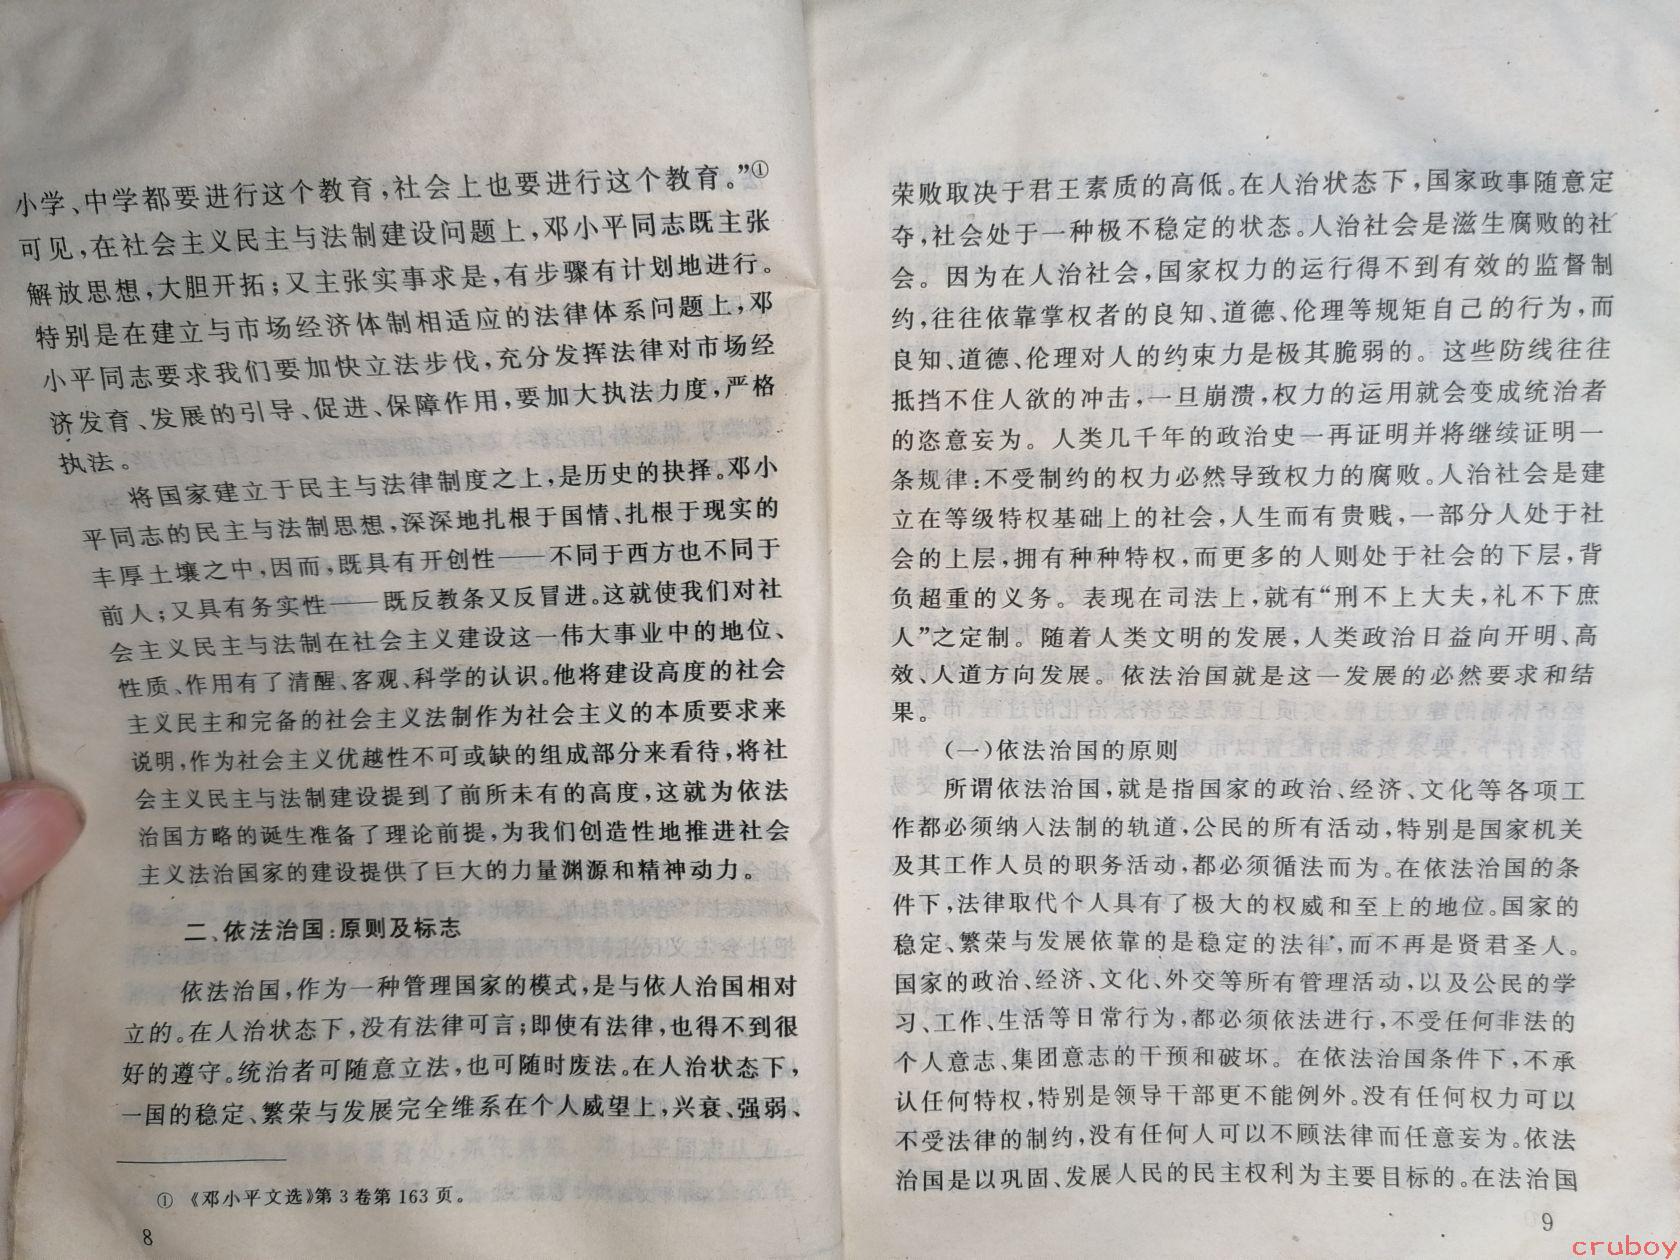 小学、中学都要进行这个教育,社会上也要进行这个教育。”①
可见,在社会主义民主与法制建设问题上,邓小平同志既主张
解放思想,大胆开拓;又主张实事求是,有步骤有计划地进行。
特别是在建立与市场经济体制相适应的法律体系问题上,邓
小平同志要求我们要加快立法步伐,充分发挥法律对市场经
济发育、发展的引导、促进、保障作用,要加大执法力度,严格
执法。
将国家建立于民主与法律制度之上,是历史的抉择。邓小
平同志的民主与法制思想,深深地扎根于国情、扎根于现实的
丰厚土壤之中,因而,既具有开创性——不同于西方也不同于
前人;又具有务实性——既反教条又反冒进。这就使我们对社
会主义民主与法制在社会主义建设这一伟大事业中的地位、
性质、作用有了清醒、客观、科学的认识。他将建设高度的社会
主义民主和完备的社会主义法制作为社会主义的本质要求来
说明,作为社会主义优越性不可或缺的组成部分来看待,将社
会主义民主与法制建设提到了前所未有的高度,这就为依法
治国方略的诞生准备了理论前提,为我们创造性地推进社会
主义法治国家的建设提供了巨大的力量渊源和精神动力。
二、依法治国:原则及标志
依法治国,作为一种管理国家的模式,是与依人治国相对
立的。在人治状态下,没有法律可言;即使有法律,也得不到很
好的遵守。统治者可随意立法,也可随时废法。在人治状态下,
一国的稳定、繁荣与发展完全维系在个人威望上,兴衰、强弱、
① 《邓小平文选》第3卷第163页。
8
荣败取决于君王素质的高低。在人治状态下,国家政事随意定
夺,社会处于一种极不稳定的状态。人治社会是滋生腐败的社
会。因为在人治社会,国家权力的运行得不到有效的监督制
约,往往依靠掌权者的良知、道德、伦理等规矩自己的行为,而
良知、道德、伦理对人的约束力是极其脆弱的。这些防线往往
抵挡不住人欲的冲击,一旦崩溃,权力的运用就会变成统治者
的恣意妄为。人类几千年的政治史一再证明并将继续证明一
条规律:不受制约的权力必然导致权力的腐败。人治社会是建
立在等级特权基础上的社会,人生而有贵贱,一部分人处于社
会的上层,拥有种种特权,而更多的人则处于社会的下层,背
负超重的义务。表现在司法上,就有“刑不上大夫,礼不下庶
人”之定制。随着人类文明的发展,人类政治日益向开明、高
效、人道方向发展。依法治国就是这一发展的必然要求和结
果。
(一)依法治国的原则
所谓依法治国,就是指国家的政治、经济、文化等各项工
作都必须纳入法制的轨道,公民的所有活动,特别是国家机关
及其工作人员的职务活动,都必须循法而为。在依法治国的条
件下,法律取代个人具有了极大的权威和至上的地位。国家的
稳定、繁荣与发展依靠的是稳定的法律,而不再是贤君圣人。
国家的政治、经济、文化、外交等所有管理活动,以及公民的学
习、工作、生活等日常行为,都必须依法进行,不受任何非法的
个人意志、集团意志的干预和破坏。在依法治国条件下,不承
认任何特权,特别是领导干部更不能例外。没有任何权力可以
不受法律的制约,没有任何人可以不顾法律而任意妄为。依法
治国是以巩固、发展人民的民主权利为主要目标的。在法治国
9
cruboy